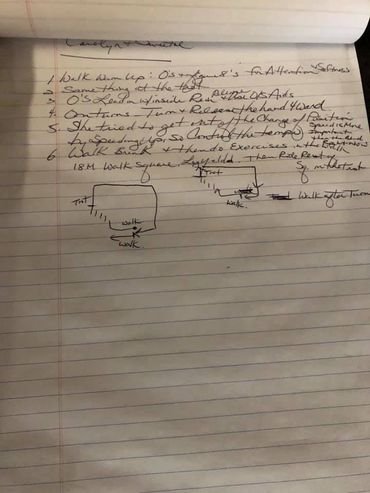 1. Walk Warm Up: O's + Figure 8's For Attention + Softness
2. Same thing at the trot
3. O's Lead w/ inside Rein + use O/S Aids
4. On turns - Turn + Release the hand 4ward
5. She tried to get out of the Change of
by Speeding Up, so Control the tempo
Speed is More
Important
6. Walk Break + then do Exercises in the
18M Walk Square, Leg yield, Then Ride Rest of
Sq. in the trot
Trot
Trot
Walk
Walk after Turn
Walk
Walk